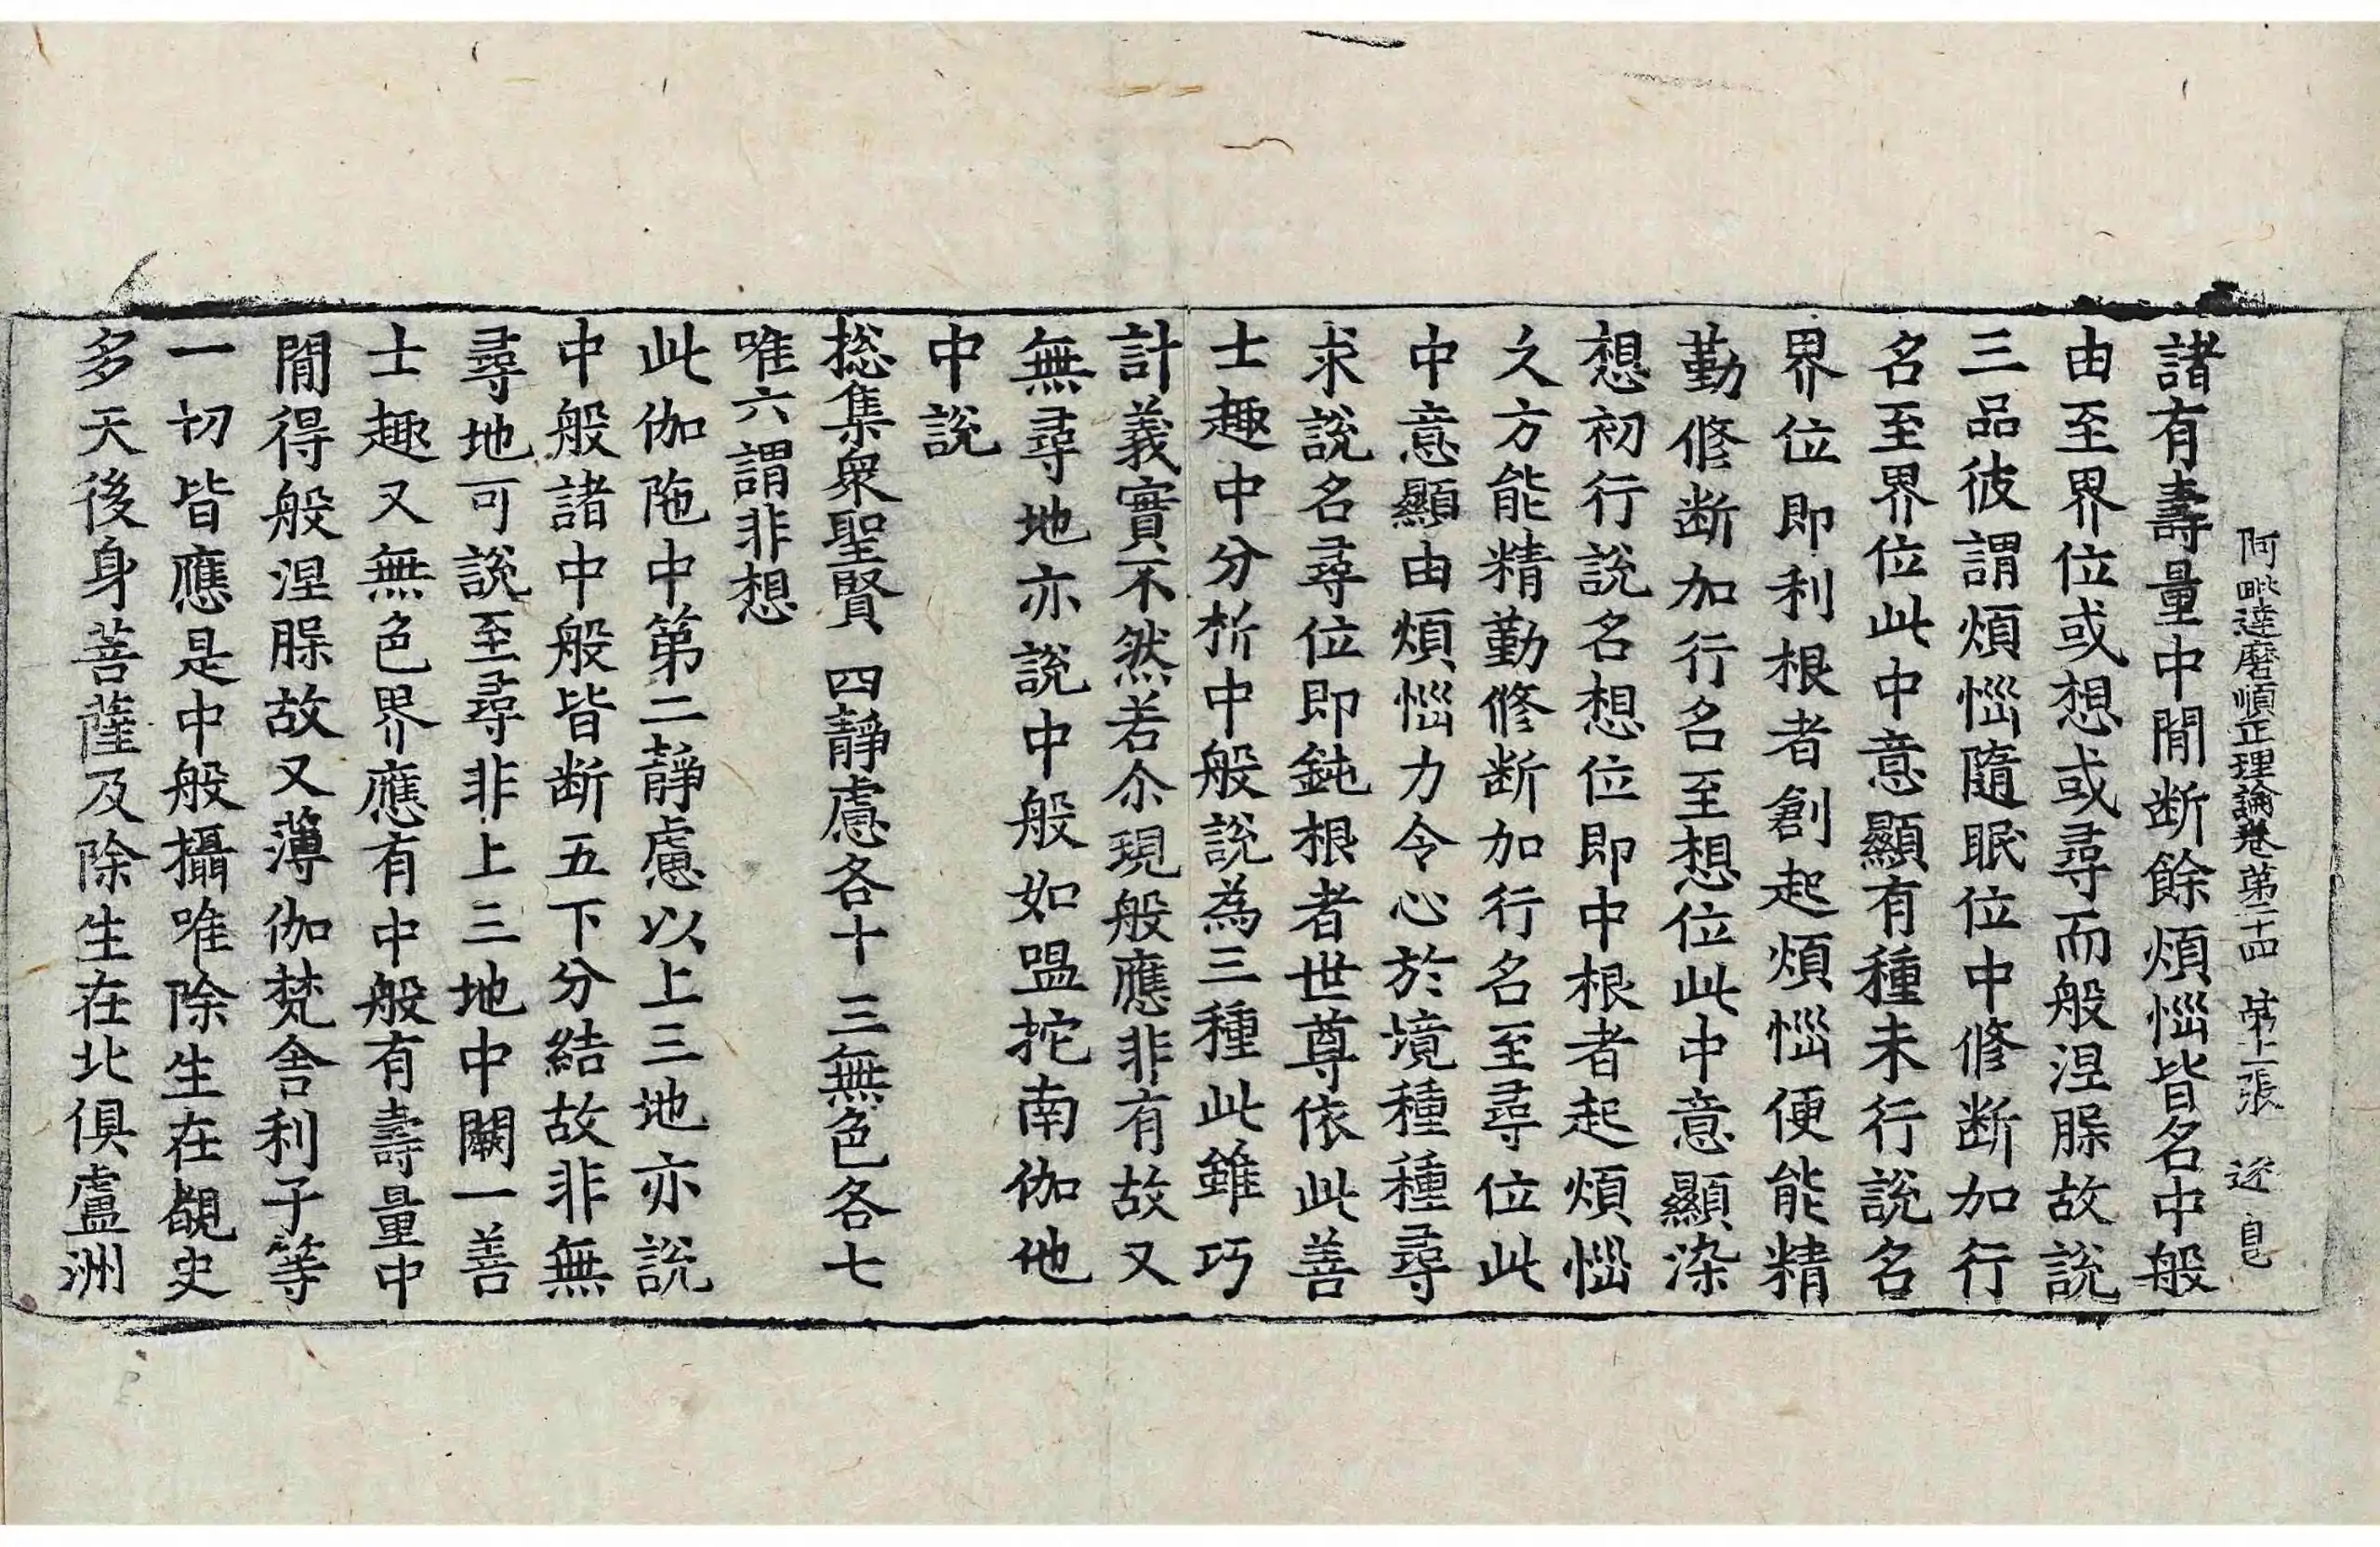 阿毗達磨順正理論卷第二十四 第十二張 逆
諸有壽量中間断餘煩惱皆名中般
由至界位或想或尋而般涅脲故說
三品彼謂煩惱隨眠位中修断加行
名至界位此中意顯有種未行說名
界位即利根者創起煩惱便能精
勤修断加行名至想位此中意顯染
想初行說名想位即中根者起煩惱
久方能精勤修断加行名至尋位此
中意顯由煩惱力令心於境種種尋
求說名尋位即鈍根者世尊依此善
士趣中分析中般說為三種此雖巧
計義實不然若尒現般應非有故又
無尋地亦說中般如嗢拕南伽他
中說
捴集衆聖賢 四靜慮各十 三無色各七
唯六謂非想
此伽陁中第二靜慮以上三地亦說
中般諸中般皆断五下分結故非無
尋地可說至尋非上三地中闕一善
士趣又無色界應有中般有壽量中
間得般涅脲故又薄伽梵舍利子等
一切皆應是中般攝唯除生在覩史
多天後身菩薩及除生在北俱盧洲